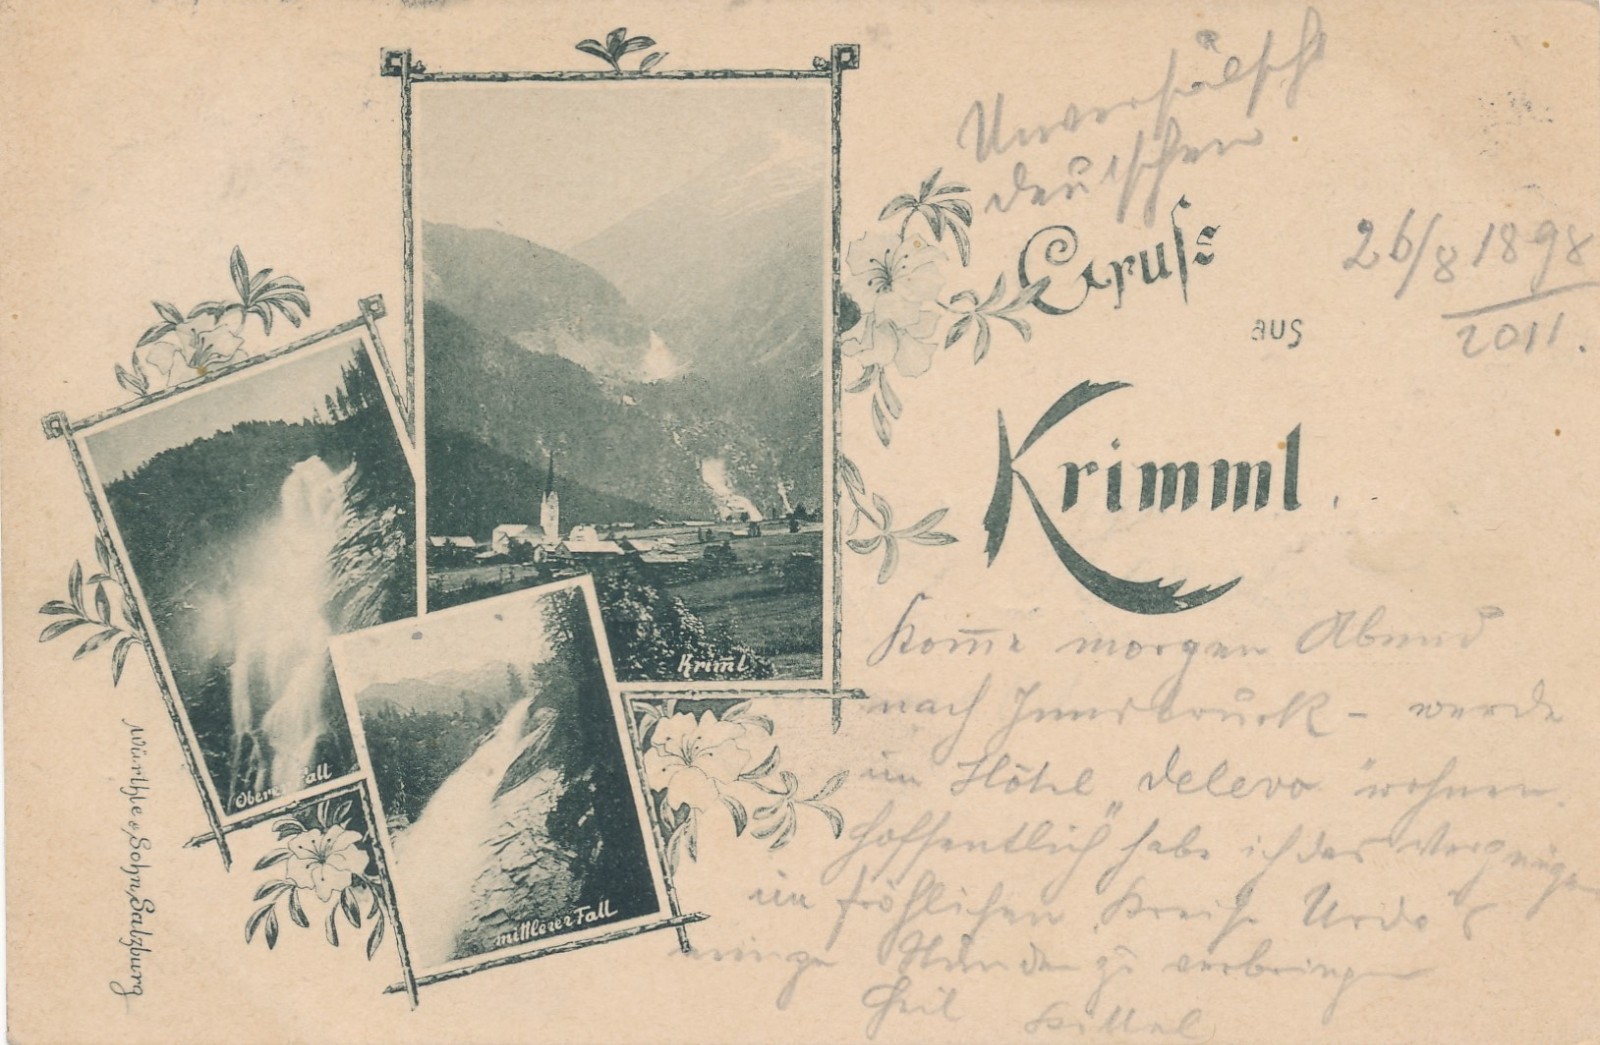 Unverfälscht
deutschen
Gruss
aus
Krimml
26/8 1898
2011.
Kom̅e morgen Abend
nach Innsbruck – werde
im Hôtel „Delevo“ wohnen.
Hoffentlich habe ich das Vergnügen
im fröhlichen Kreise Urda's
einige Stunden zu verbringen
Heil Kittel
Krim̅l
Oberer Fall
mittlerer Fall
Würthle & Sohn, Salzburg